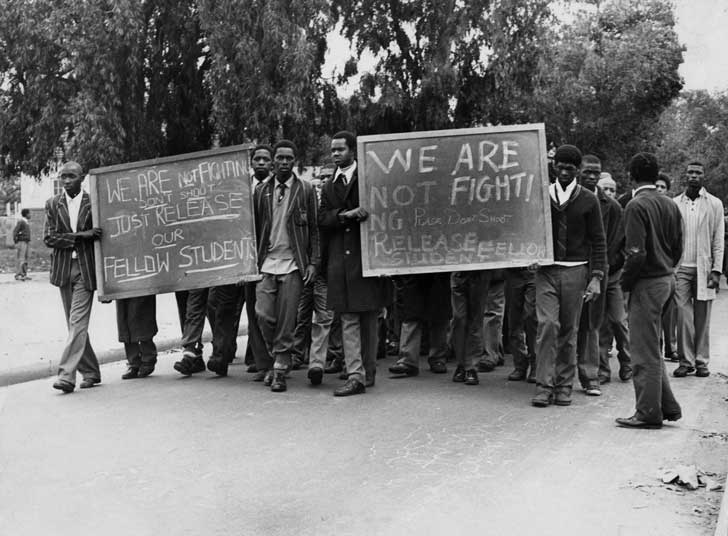 WE ARE NOT FIGHTIN
DON'T SHOOT
JUST RELEASE
OUR
FELLOW STUDENTS
WE ARE
NOT FIGHTI
NG Please DONT SHOOT
RELEASE FELLOW
STUDENTS